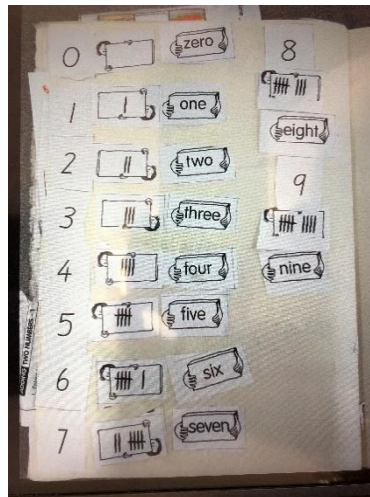 0 zero
1 one
2 two
3 three
4 four
5 five
6 six
7 seven
8
eight
9
nine
TWO NUMBERS - 1